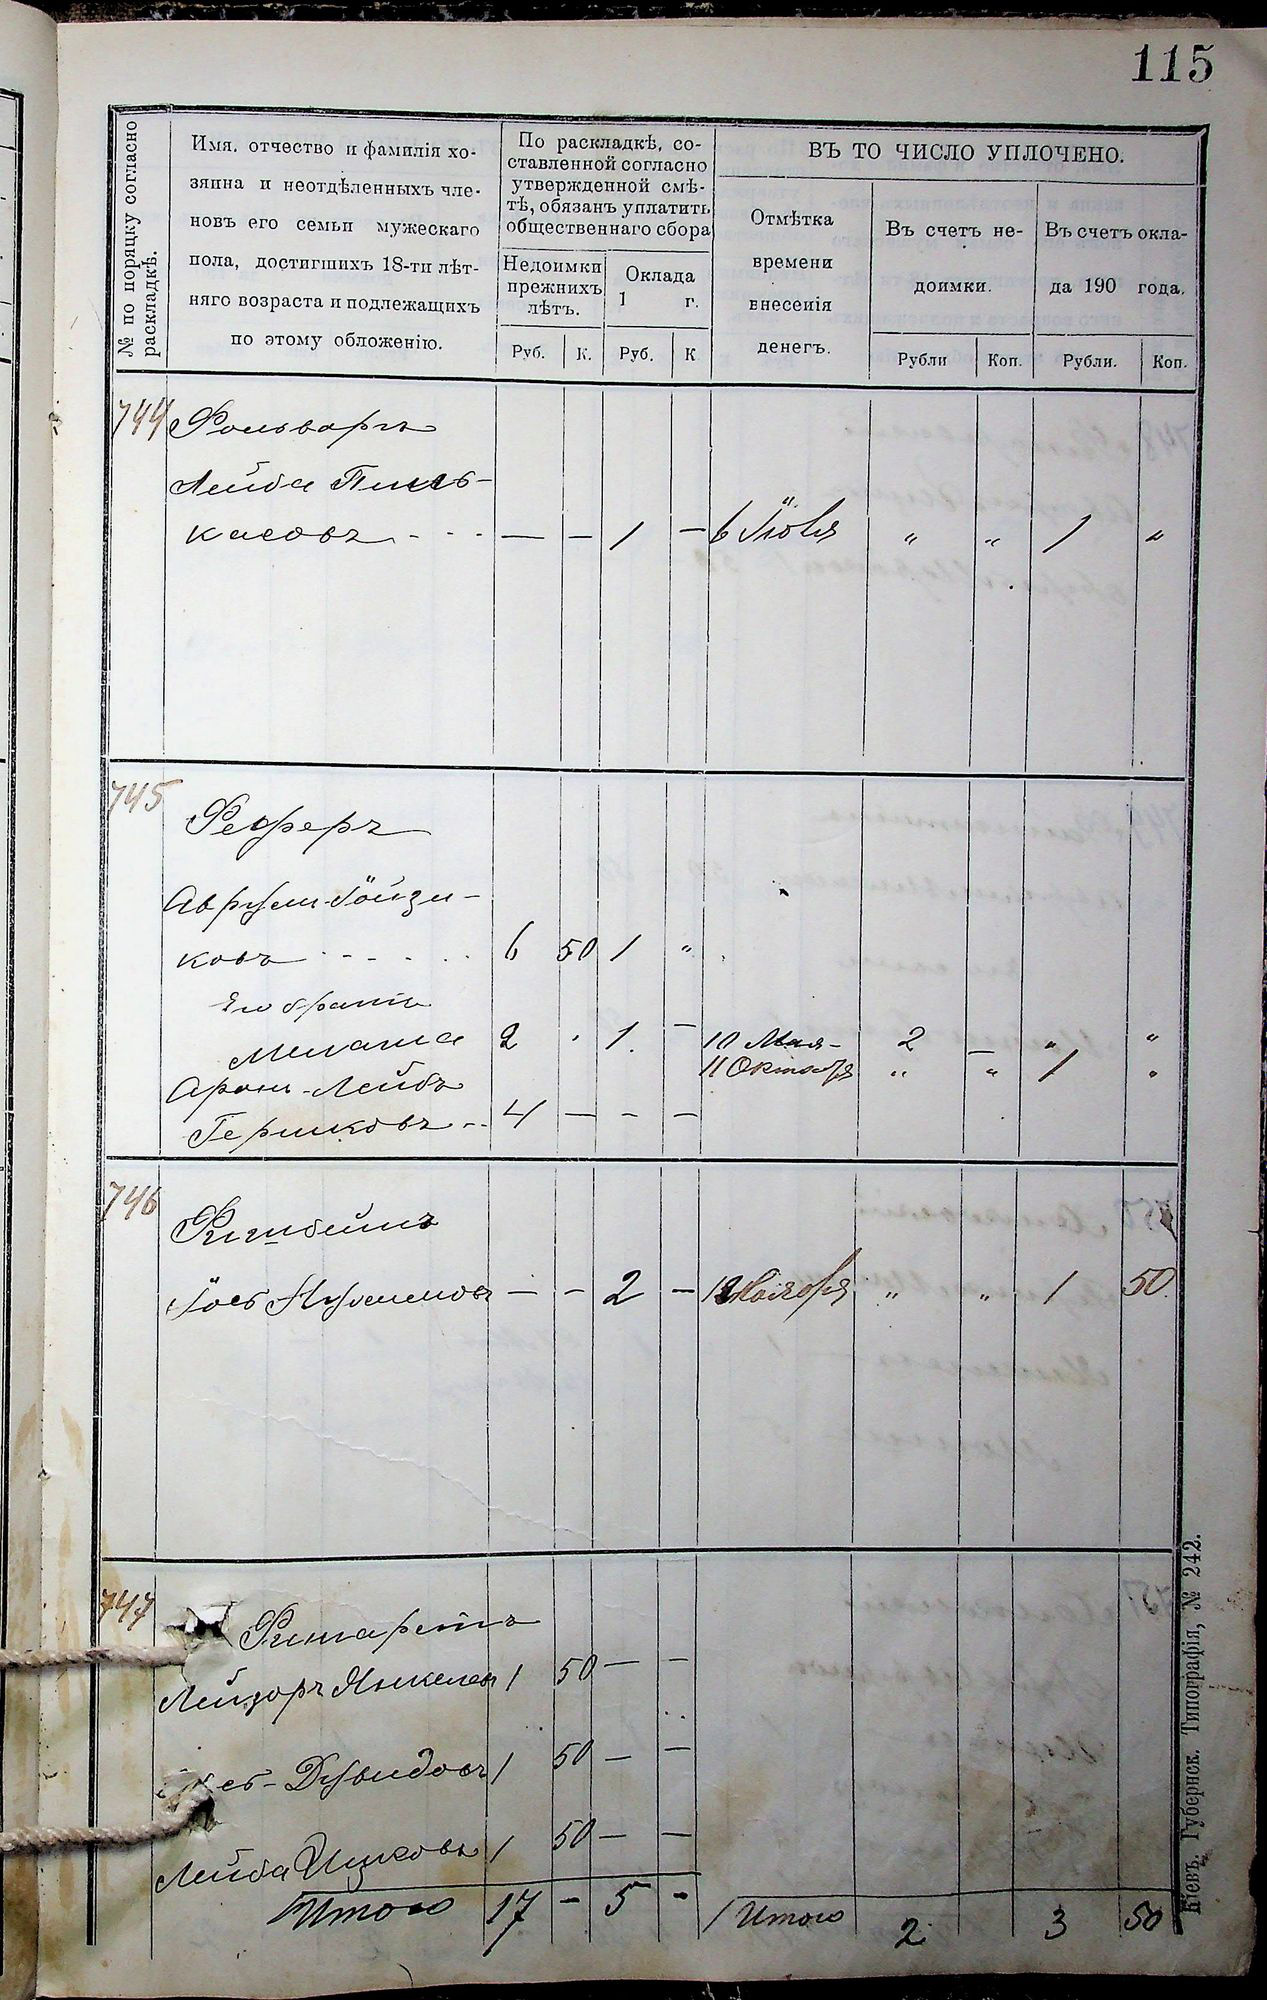 115
№ по порядку согласно
раскладкѣ.
Имя, отчество и фамилія хо-
зяина и неотдѣленныхъ чле-
новъ его семьи мужескаго
пола, достигшихъ 18-ти лѣт-
няго возраста и подлежащихъ
по этому обложенію.
По раскладкѣ, со-
ставленной согласно
утвержденной смѣ-
тѣ, обязанъ уплатить
общественнаго сбора
Недоимки
прежнихъ
лѣтъ.
Оклада
1 г.
Руб. К. Руб. К
ВЪ ТО ЧИСЛО УПЛОЧЕНО.
Отмѣтка
времени
внесенія
денегъ.
Въ счетъ не-
доимки.
Въ счетъ окла-
да 190 года.
Рубли Коп. Рубли. Коп.
744 Фольваргъ
Лейба Пинь-
касовъ - - - — — 1 — 6 Іюля " " 1 "
745
Феферъ
Аврумъ-Іойзи-
ковъ - - - - 6 50 1 "
Его братъ
2 " 1 — 10 Мая - 2 — " "
11 Октября " " 1 "
Аронъ-Лейбъ
Гершковъ -- 4 — - —
746
Фишбейнъ
Іось — - 2 — Ноября " " 1 50
747
Лейзоръ Янкелевъ 1 50 — —
-Дувидовъ 1 50 — —
Лейба Ицковъ 1 50 — —
Итого 17 - 5 - Итого 2 3 50
Кіевъ. Губернск. Типографія, № 242.